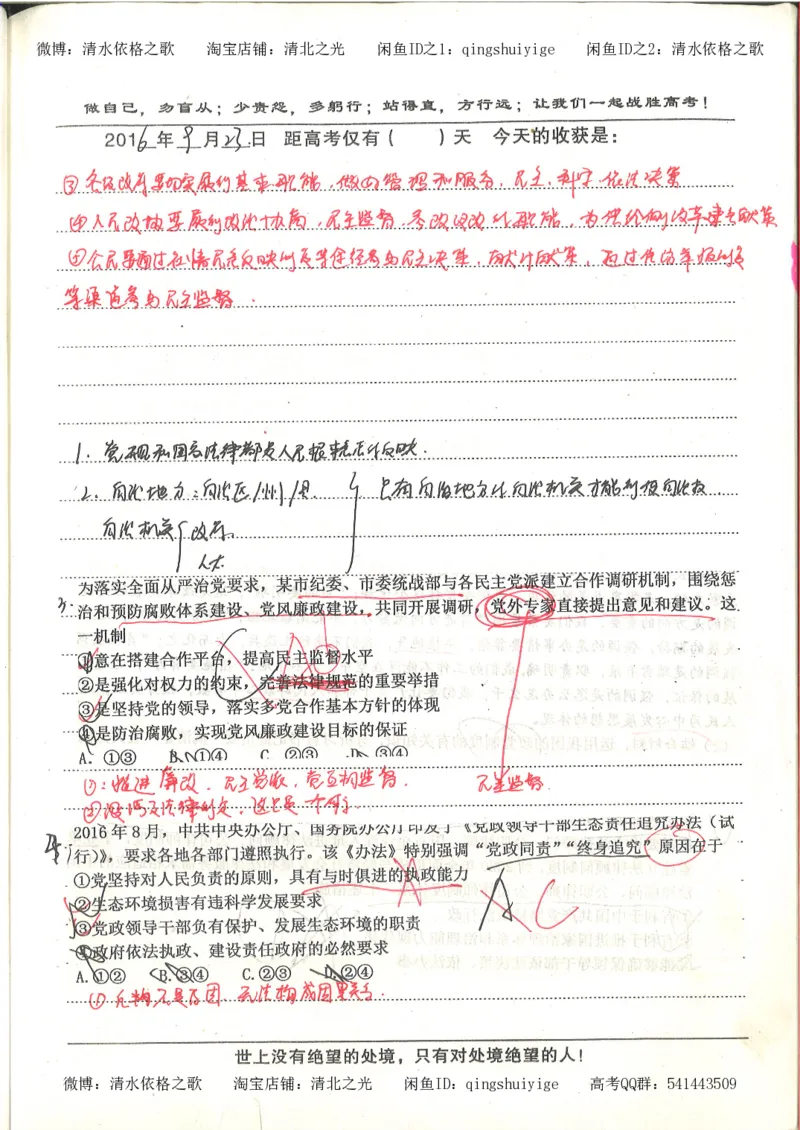 微博：清水依格之歌 淘宝店铺：清北之光 闲鱼ID之1：qingshuiyige 闲鱼ID之2：清水依格之歌
做自己，勿盲从；少责怨，多躬行；站得直，方行远；让我们一起战胜高考！
2016年9月23日 距高考仅有（ ）天 今天的收获是：
③各级政府要切实履行基本职能，做好管理和服务，民主、科学、依法决策
④人民政协要履行政治协商、民主监督、参政议政
等渠道参与民主监督．
1．党规和国家法律都是人民根本意志的反映．
2．自治地方：自治区/州/县． 只有自治地方的自治机关才能行使自治权
自治机关 政府
人大
为落实全面从严治党要求，某市纪委、市委统战部与各民主党派建立合作调研机制，围绕惩
3．治和预防腐败体系建设、党风廉政建设，共同开展调研，党外专家直接提出意见和建议。这
一机制
①意在搭建合作平台，提高民主监督水平
②是强化对权力的约束，完善法律规范的重要举措
③是坚持党的领导，落实多党合作基本方针的体现
④是防治腐败，实现党风廉政建设目标的保证
A．①③ B．①④ C．②③ D．③④
民主监督．
2016年8月，中共中央办公厅、国务院办公厅印发了《党政领导干部生态责任追究办法（试
4．行）》，要求各地各部门遵照执行。该《办法》特别强调“党政同责”“终身追究”原因在于
①党坚持对人民负责的原则，具有与时俱进的执政能力
②生态环境损害有违科学发展要求
③党政领导干部负有保护、发展生态环境的职责
④政府依法执政、建设责任政府的必然要求
A.①② B.③④ C.②③ D.②④
世上没有绝望的处境，只有对处境绝望的人！
微博：清水依格之歌 淘宝店铺：清北之光 闲鱼ID：qingshuiyige 高考QQ群：541443509